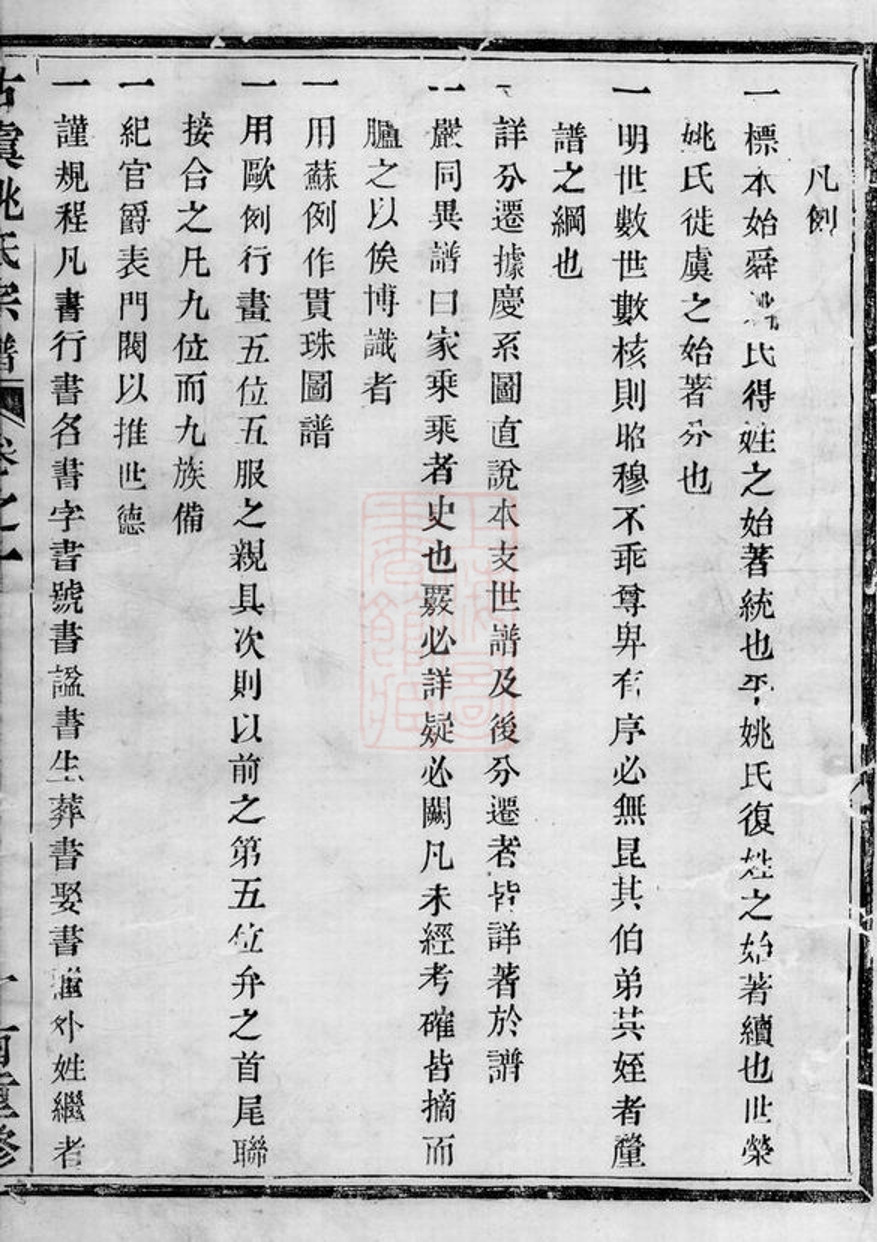 凡例
一標本始舜姚氏得姓之始著統也平姚氏復姓之始著續也世榮
姚氏徙虞之始著分也
一明世數世數核則昭穆不乖尊卑有序必無昆其伯弟其姪者釐
譜之綱也
一詳分遷據慶系圖直說本支世譜及後分遷者皆詳著於譜
一嚴同異譜曰家乘乘者史也覈必詳疑必闕凡未經考確皆摘而
臚之以俟博識者
一用蘇例作貫珠圖譜
一用歐例行畫五位五服之親具次則以前之第五位弁之首尾聯
接合之凡九位而九族備
一紀官爵表門閥以推世德
一謹規程凡書行書名書字書號書諡書生葬書娶書繼外姓繼者
古虞姚氏宗譜 卷之一